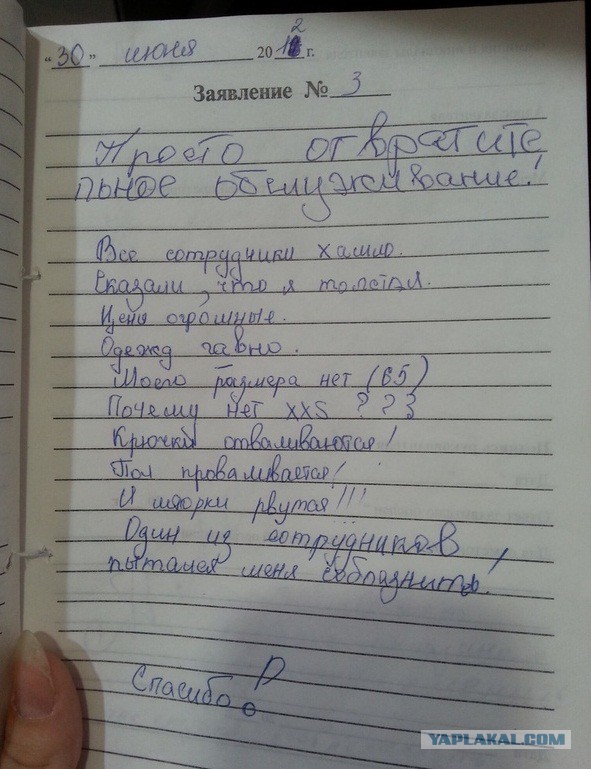 "30" июня 2012 г.
Заявление № 3
Просто отвратите
льное обслуживание!
Все сотрудники хамло.
Сказали, что я толстая.
Цены огромные.
Одежд гавно.
Моего размера нет (65)
Почему нет XXS ???
Крючки отваливаются!
Пол проваливается!
И шторки рвутся!!!
Один из сотрудников,
пытался меня соблазнить!
Спасибо!
YAPLAKAL.COM